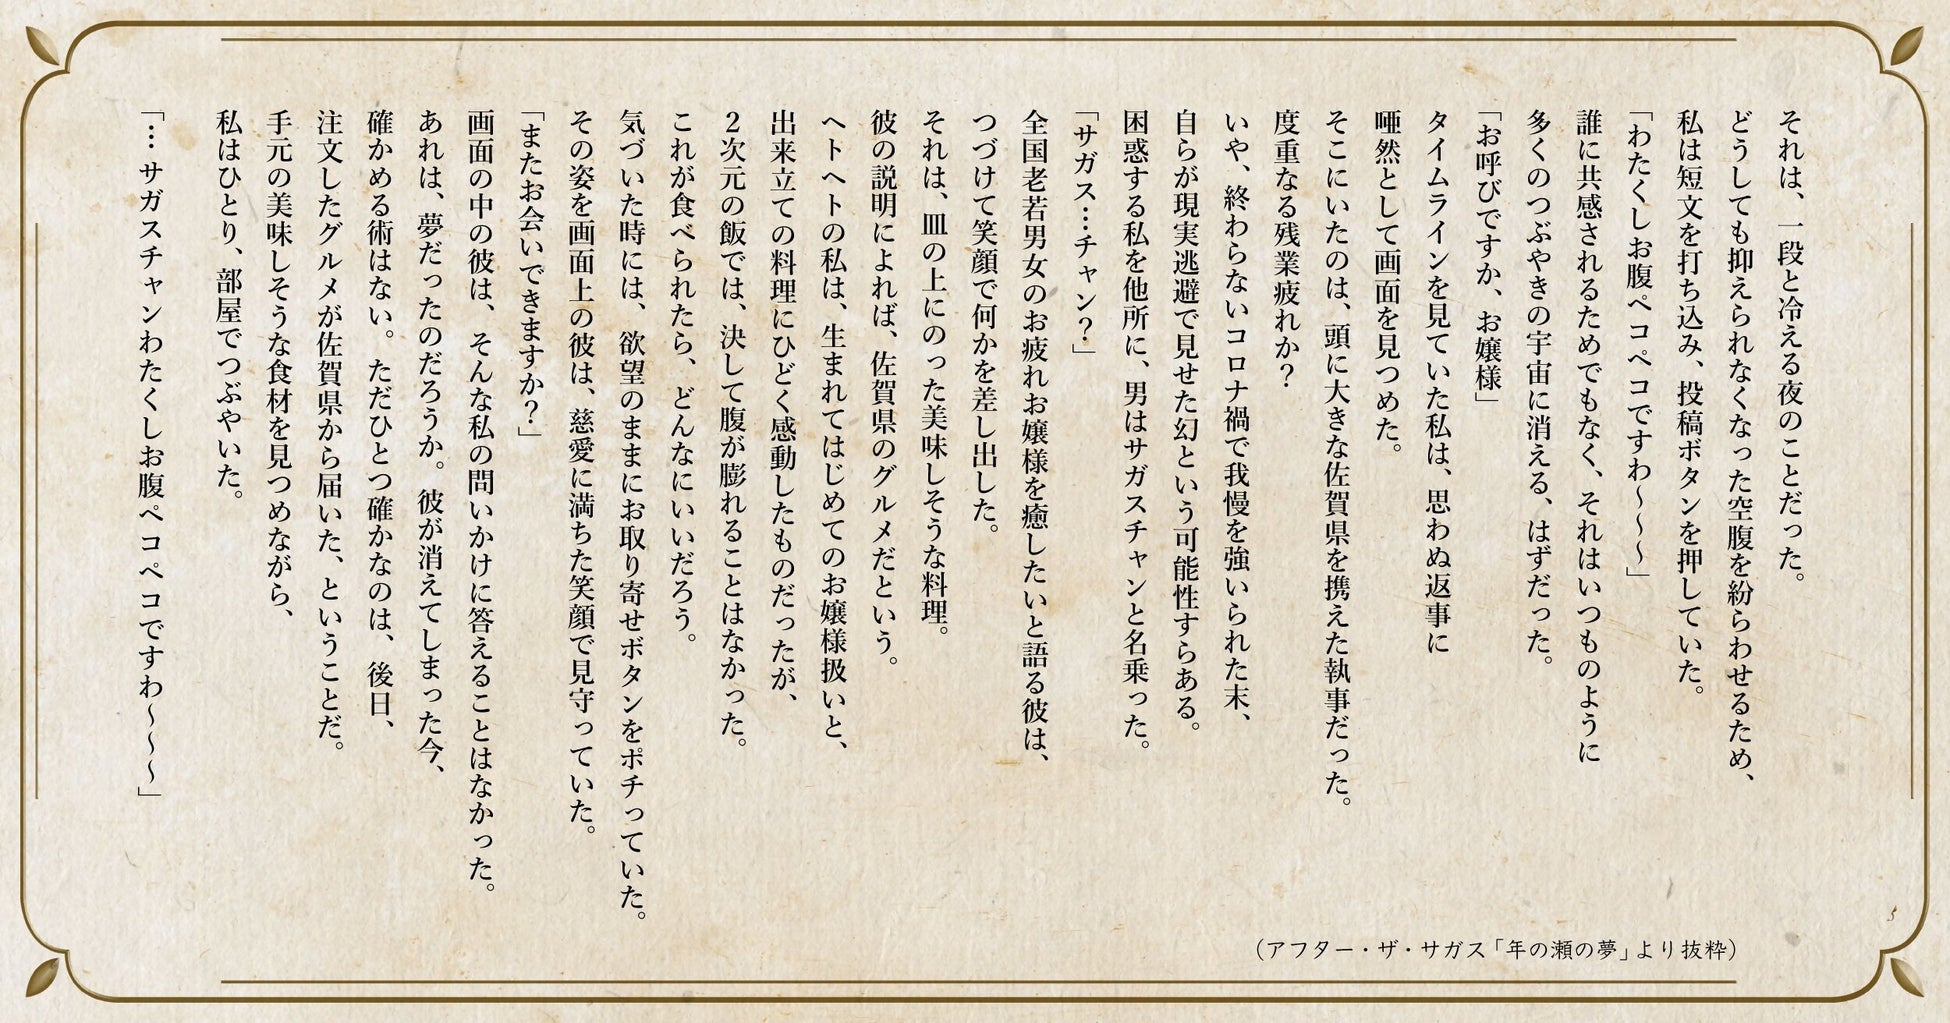 それは、一段と冷える夜のことだった。
どうしても抑えられなくなった空腹を紛らわせるため、
私は短文を打ち込み、投稿ボタンを押していた。
「わたくしお腹ペコペコですわ～～～」
誰に共感されるためでもなく、それはいつものように
多くのつぶやきの宇宙に消える、はずだった。
「お呼びですか、お嬢様」
タイムラインを見ていた私は、思わぬ返事に
唖然として画面を見つめた。
そこにいたのは、頭に大きな佐賀県を携えた執事だった。
度重なる残業疲れか？
いや、終わらないコロナ禍で我慢を強いられた末、
自らが現実逃避で見せた幻という可能性すらある。
困惑する私を他所に、男はサガスチャンと名乗った。
「サガス…チャン？」
全国老若男女のお疲れお嬢様を癒したいと語る彼は、
つづけて笑顔で何かを差し出した。
それは、皿の上にのった美味しそうな料理。
彼の説明によれば、佐賀県のグルメだという。
ヘトヘトの私は、生まれてはじめてのお嬢様扱いと、
出来立ての料理にひどく感動したものだったが、
2次元の飯では、決して腹が膨れることはなかった。
これが食べられたら、どんなにいいだろう。
気づいた時には、欲望のままにお取り寄せボタンをポチっていた。
その姿を画面上の彼は、慈愛に満ちた笑顔で見守っていた。
「またお会いできますか？」
画面の中の彼は、そんな私の問いかけに答えることはなかった。
あれは、夢だったのだろうか。彼が消えてしまった今、
確かめる術はない。ただひとつ確かなのは、後日、
注文したグルメが佐賀県から届いた、ということだ。
手元の美味しそうな食材を見つめながら、
私はひとり、部屋でつぶやいた。
「…サガスチャンわたくしお腹ペコペコですわ～～～」
（アフター・ザ・サガス「年の瀬の夢」より抜粋）